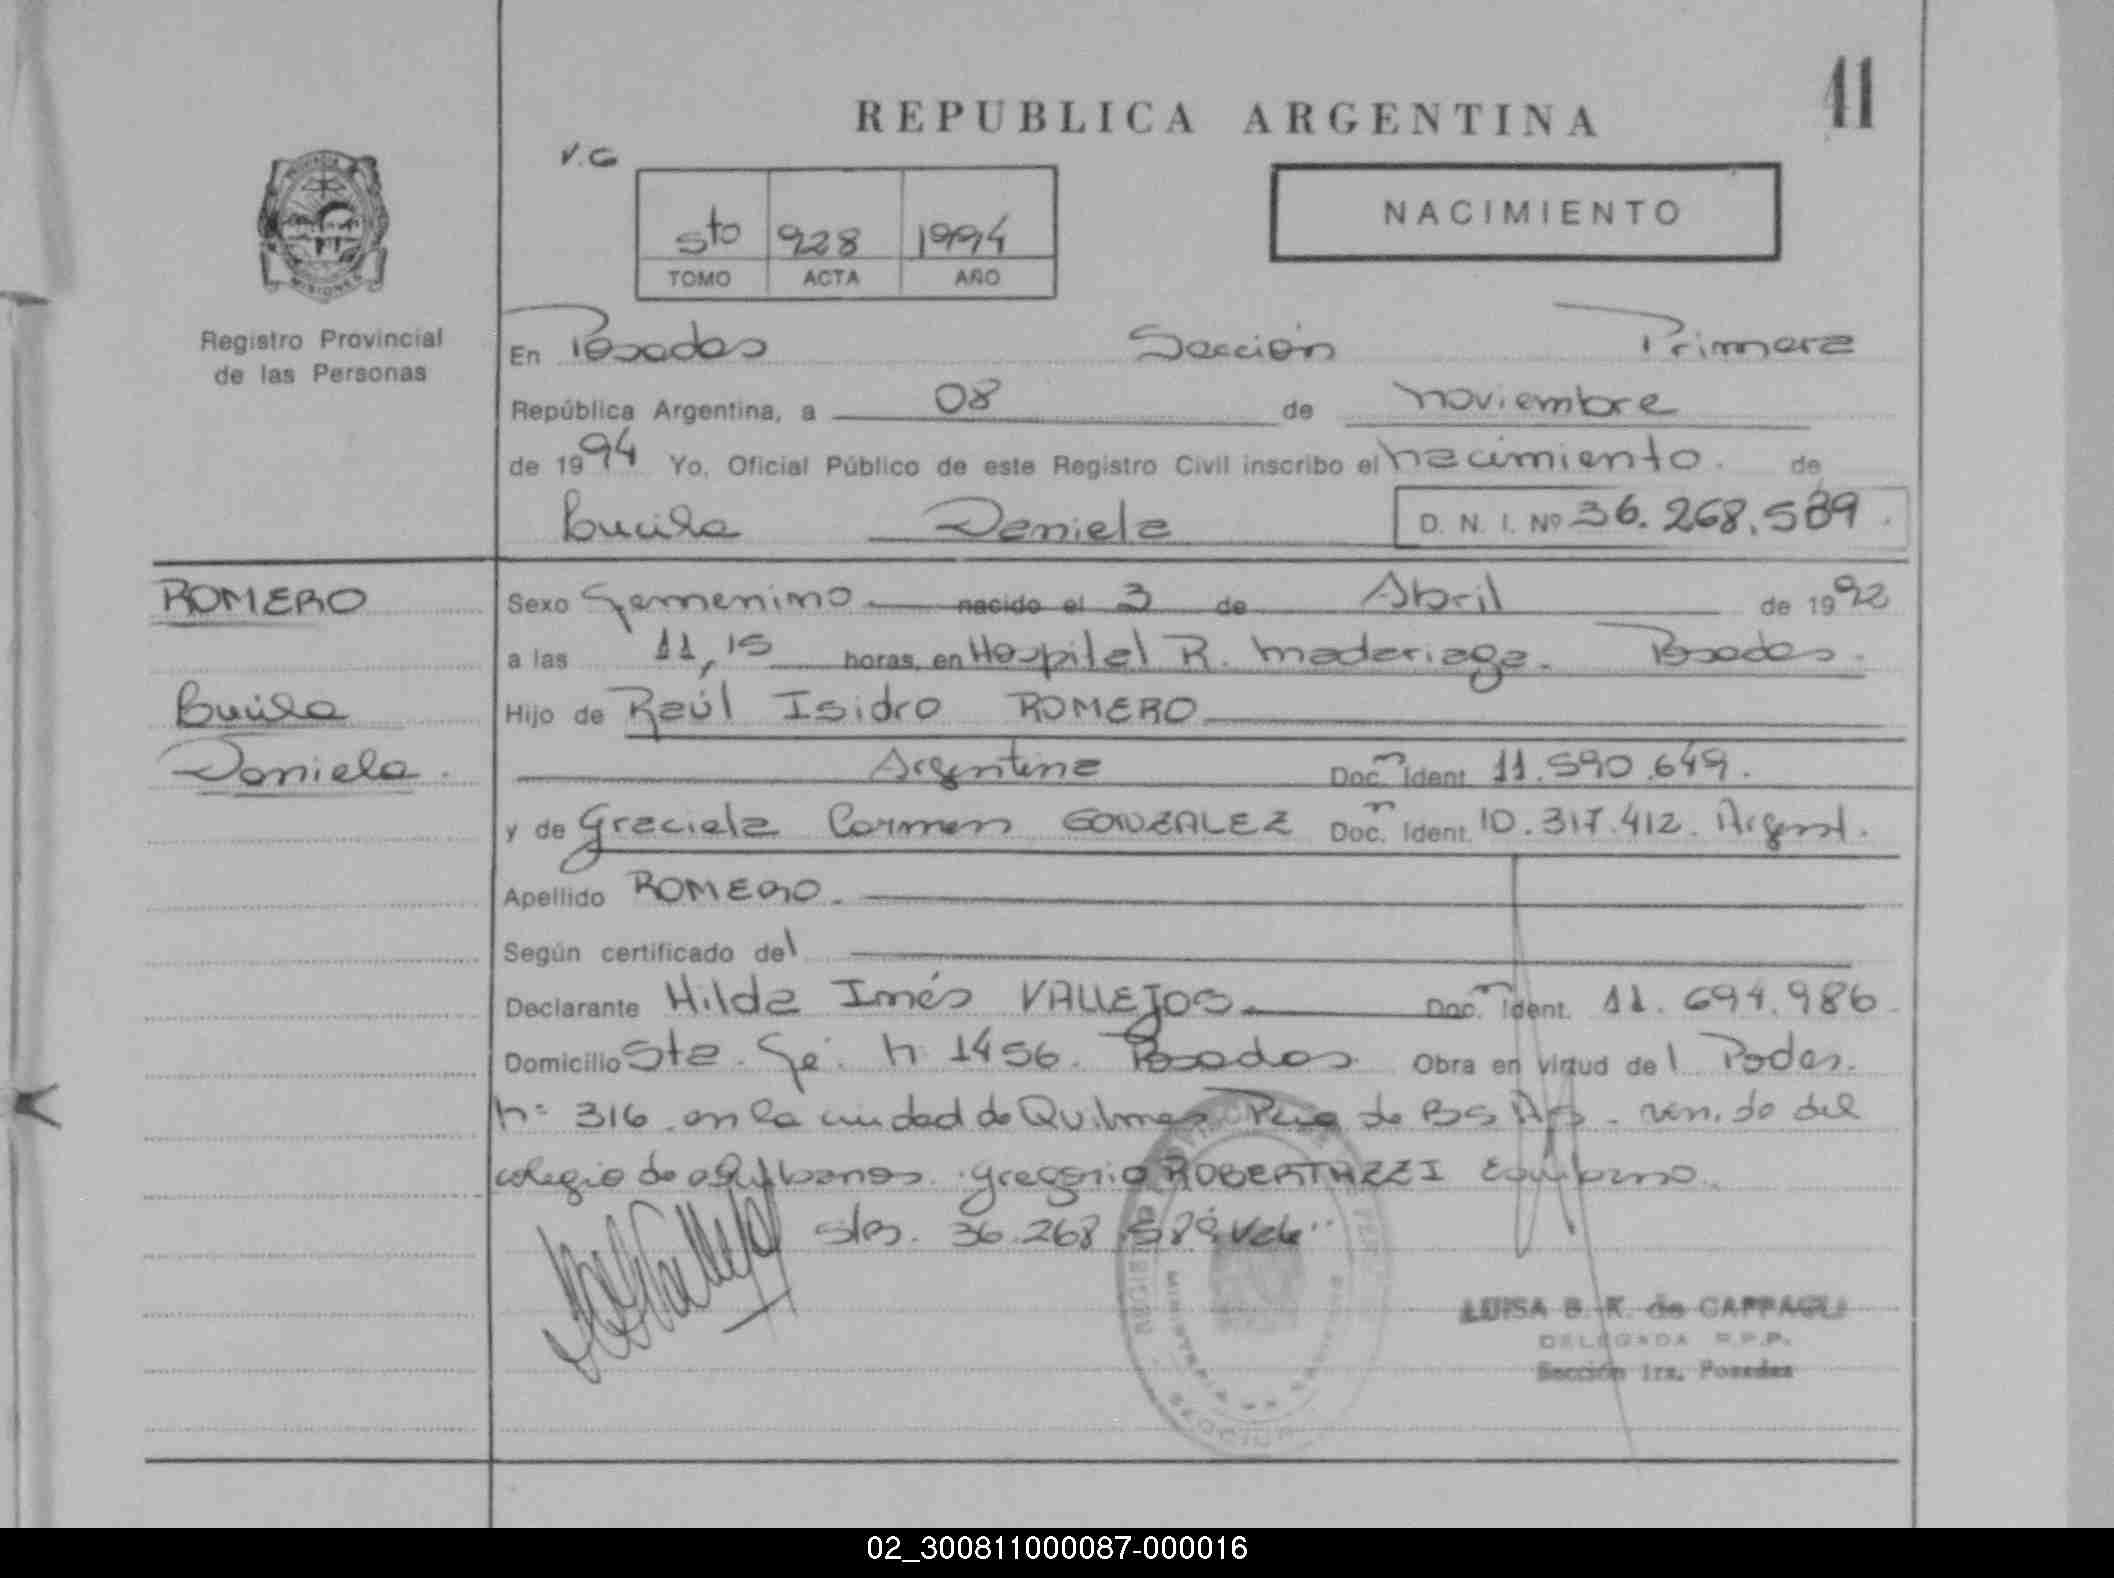 41
REPUBLICA ARGENTINA
V.G
NACIMIENTO
5to 928 1994
TOMO ACTA AÑO
MISIONES
Registro Provincial
de las Personas
En Posadas Sección Primera
República Argentina, a 08 de noviembre
de 1994 Yo, Oficial Público de este Registro Civil inscribo el nacimiento. de
Daniela D. N. I. Nº 36.268.589.
ROMERO
Daniela.
Sexo Femenino nacido el 3 de Abril de 1992
a las 11,15 horas, en Hospital R. Madariaga. Posadas.
Hijo de Raúl Isidro ROMERO
Argentina Doc. Ident. 11.590.649.
y de Graciela Carmen GONZALEZ Doc. Ident. 10.317.412. Argent.
Apellido ROMERO.
Según certificado del
Declarante Hilda Inés VALLEJOS Doc. Ident. 11.694.986
Domicilio Sta. Fé. n 1456. Posadas Obra en virtud del Poder.
nº 316 en la ciudad de Quilmes Pcia de Bs As. del
colegio de Gregorio ROBERTAZZI
36.268.589 Vale
LUISA B. K. de CAPPAGLI
DELEGADA R.P.P.
Sección 1ra. Posadas
02_300811000087-000016